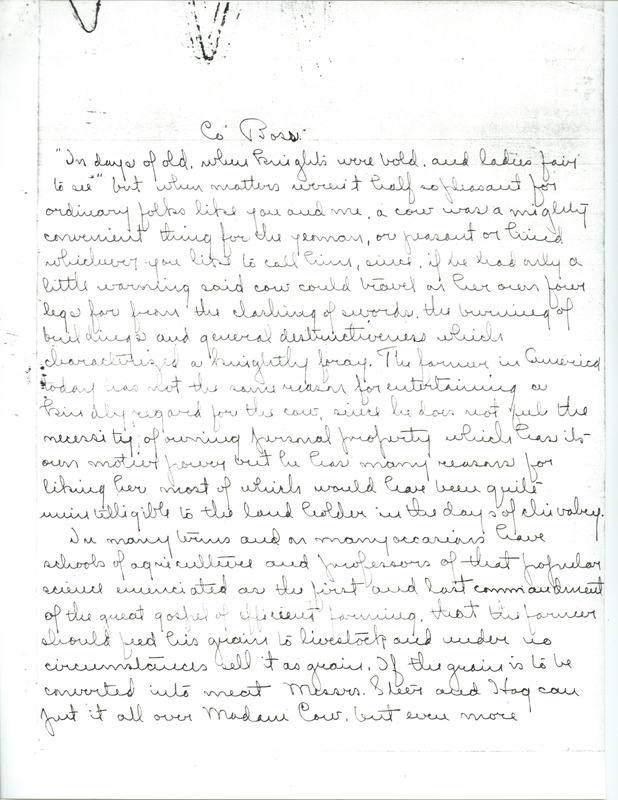 Co' Boss.
"In days of old, when knights were bold, and ladies fair
to see" but when matters weren't half so pleasant for
ordinary folks like you and me, a cow was a mighty
convenient thing for the yeoman, or peasant or hind
whichever you like to call him, since, if he had only a
little warning said cow could travel on her own four
legs far from the clashing of swords, the burning of
buildings and general destructiveness which
characterized a knightly foray. The farmer in America
today has not the same reason for entertaining a
kindly regard for the cow, since he does not feel the
necessity of owning personal property which has its
own motive power but he has many reasons for
liking her most of which would have been quite
unintelligible to the land holder in the days of chivalry.
In many terms and on many occasions have
schools of agriculture and professors of that popular
science enunciated as the first and last commandment
of the great gospel of efficient farming, that the farmer
should feed his grain to livestock and under no
circumstances sell it as grain. If the grain is to be
converted into meat Messrs. Steer and Hog can
put it all over Madam Cow, but even more